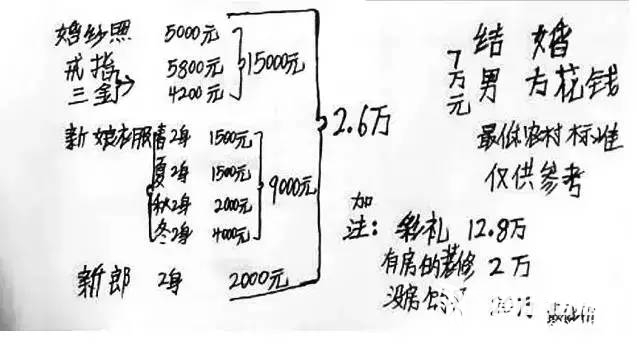 婚纱照 5000元
戒指 5800元
三金 4200元
15000元
新娘衣服 春2身 1500元
夏2身 1500元
秋2身 2000元
冬2身 4000元
9000元
新郎 2身 2000元
2.6万
结婚
7万元 男方花钱
最低农村标准
仅供参考
加
注: 彩礼 12.8万
有房的装修 2万
没房的